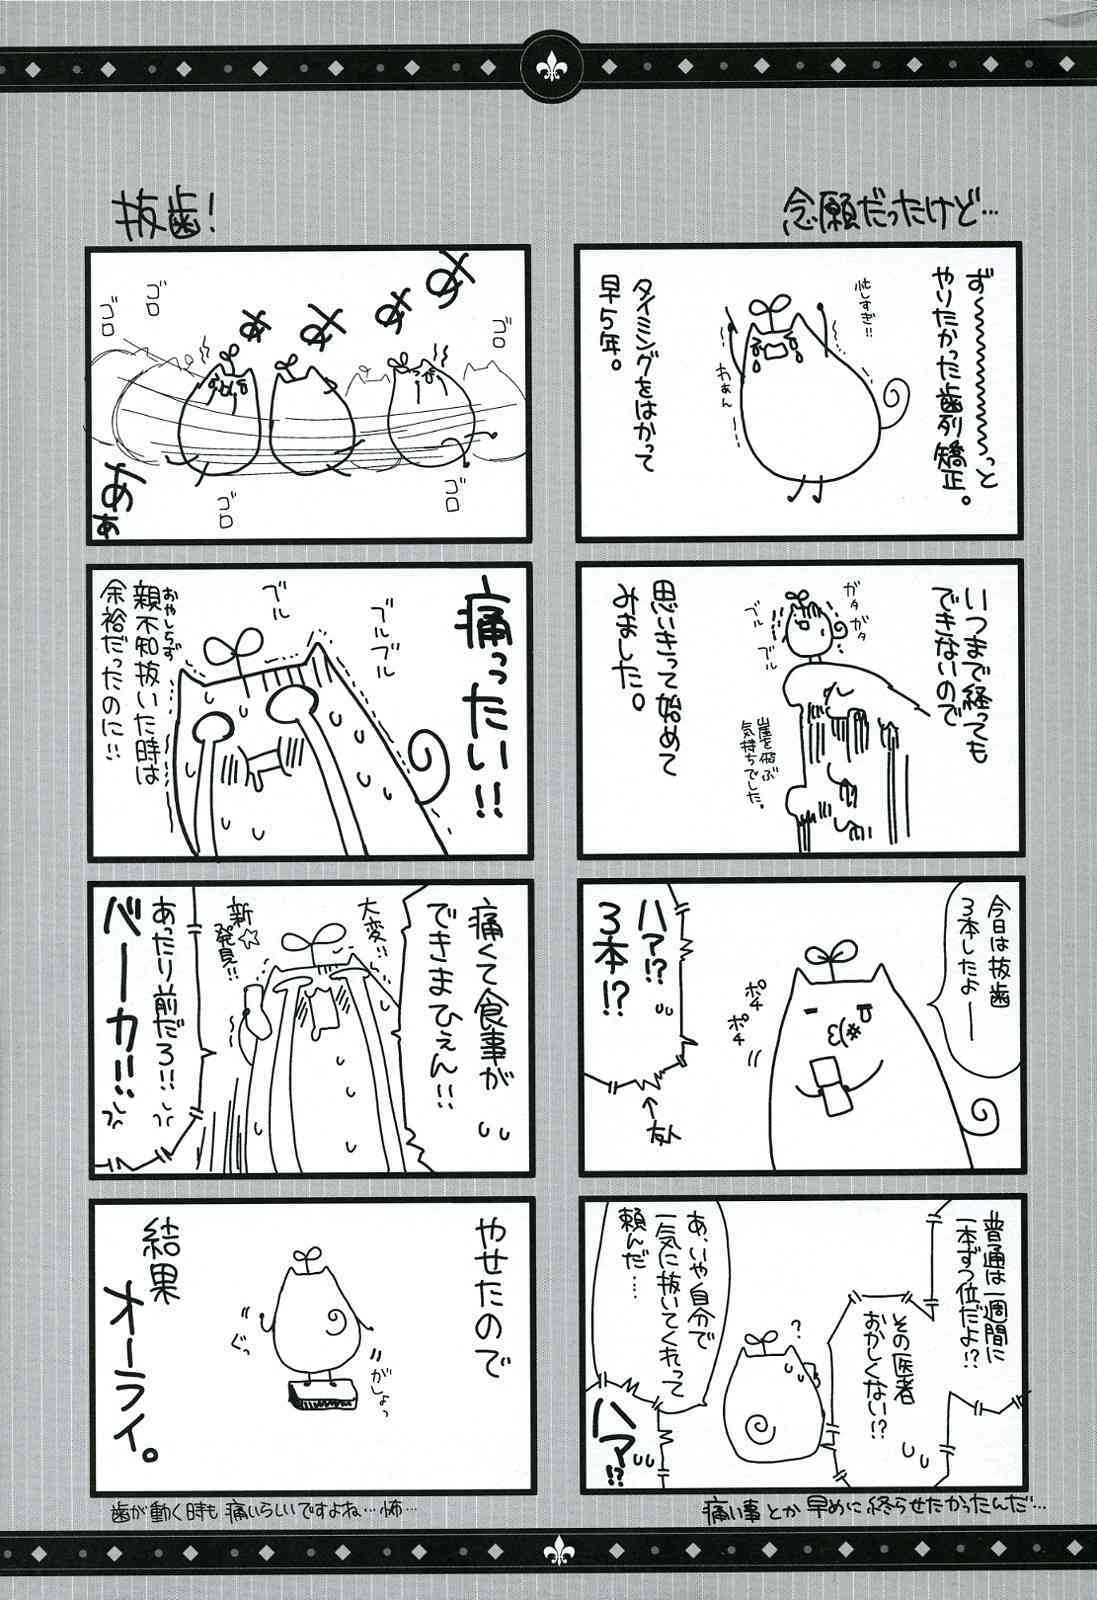 念願だったけど…
ず〜〜〜〜っと
やりたかった歯列矯正。
忙しすぎ!!
わぁん
タイミングをはかって
早5年。
いつまで経っても
できないので
ガタガタ
ブルブル
崖を飛ぶ
気持ちでした。
思いきって始めて
みました。
今日は抜歯
3本したよ――
ポチ
ポチ
ハァ!?
3本!?
←友人
普通は一週間に
一本ずつ位だよ!?
その医者
おかしくない!?
?
あ、いや自分で
一気に抜いてくれって
頼んだ……
ハァ!?
痛い事とか早めに終らせたかったんだ…
抜歯!
あ
あ
あ
あ
ゴロ
ゴロ
ゴロ
ゴロ
ゴロ
あぁ
痛ったい!!
ブルブル
ブル
親不知抜いた時は
おやしらず
余裕だったのに!!
痛くて食事が
できまひぇん!!
大変!!
新☆
発見!!
あったり前だろ!!
バーカ!!
やせたので
がしょっ
ぐっ
結果
オーライ。
歯が動く時も痛いらしいですよね…怖…